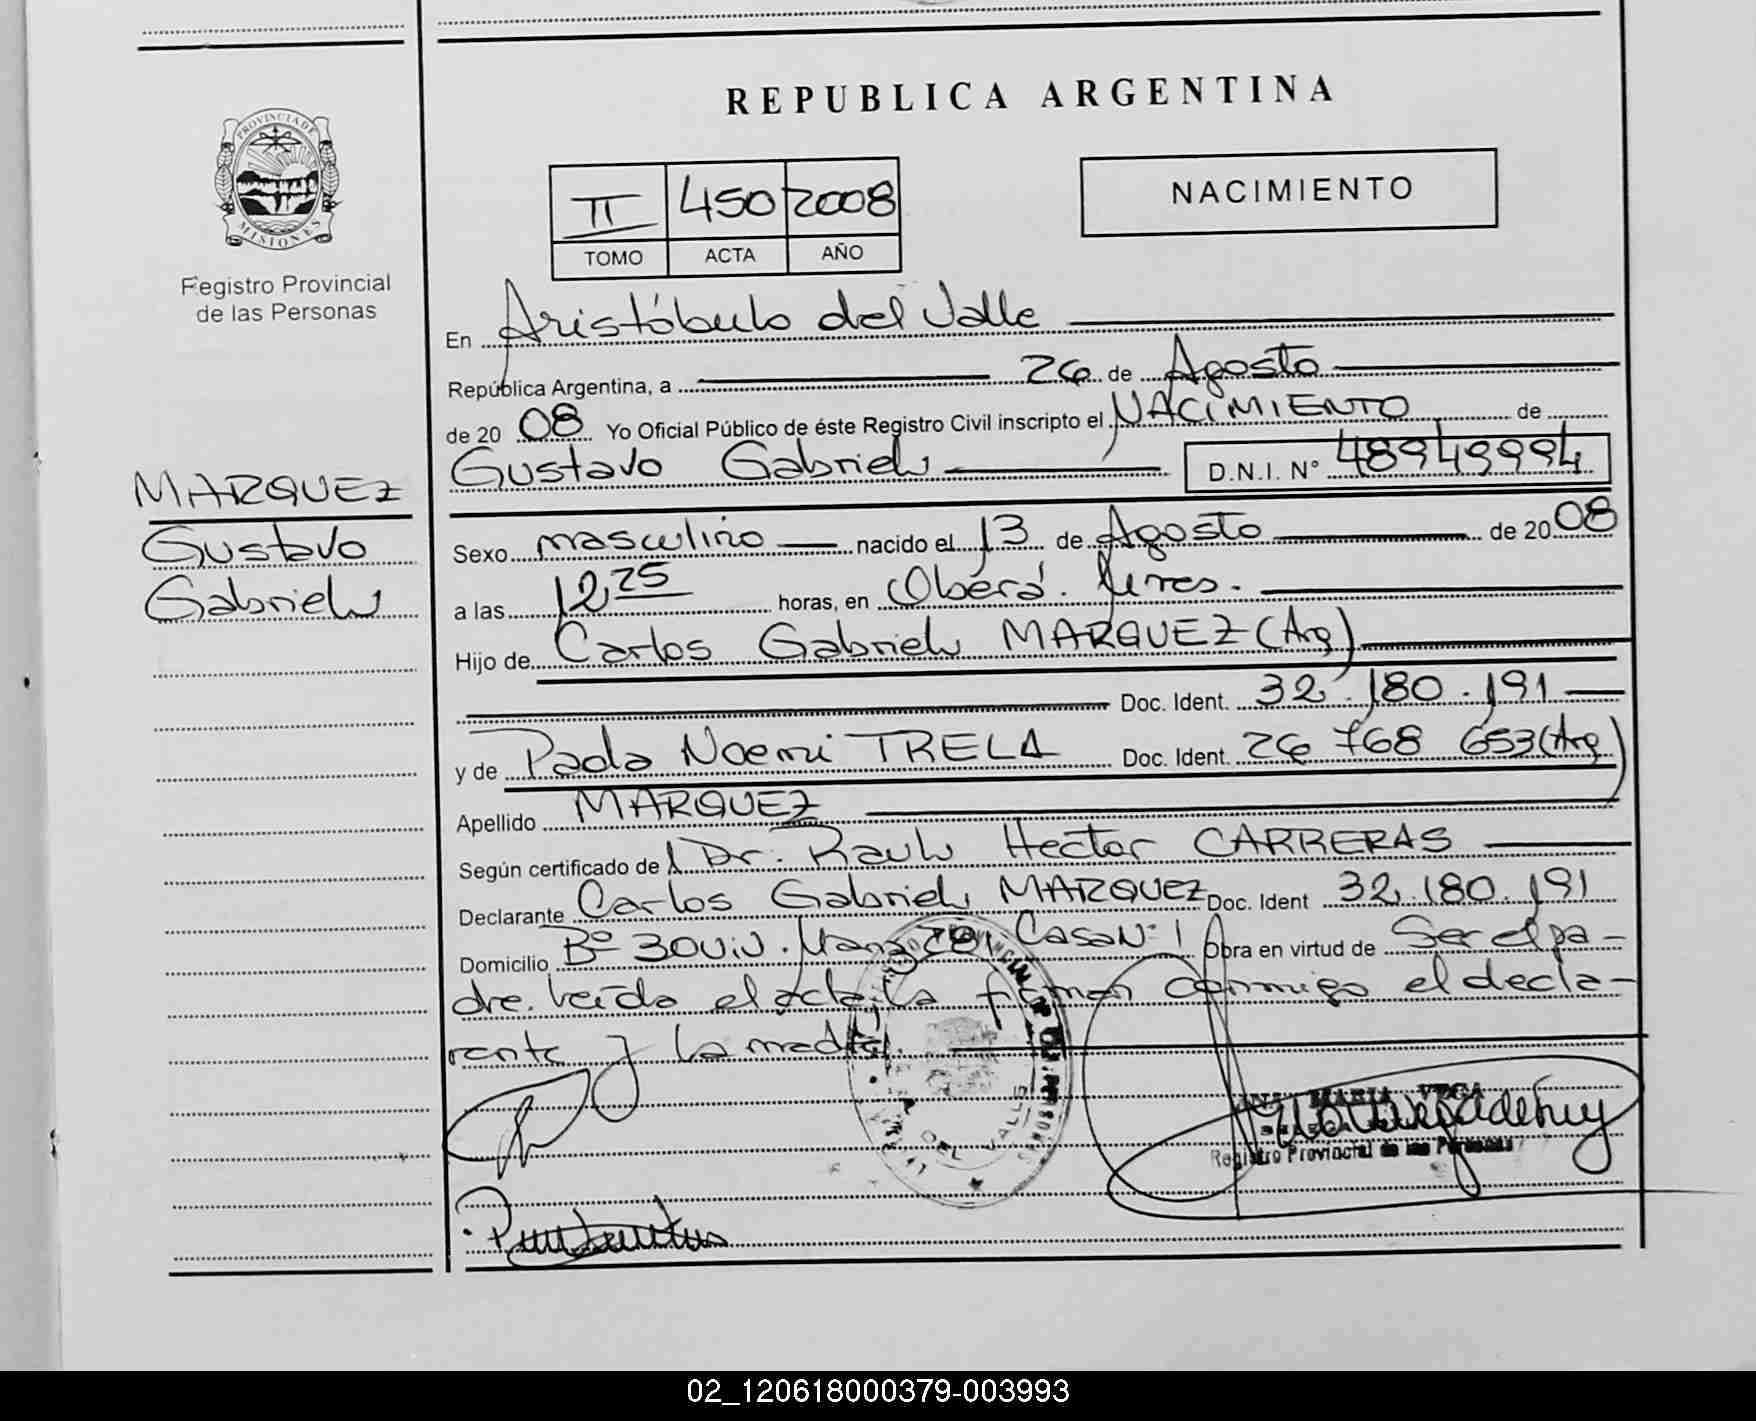 REPUBLICA ARGENTINA
PROVINCIA DE MISIONES
Registro Provincial
de las Personas
II 450 2008
TOMO ACTA AÑO
NACIMIENTO
En Aristóbulo del Valle
República Argentina, a 26 de Agosto
de 20 08 Yo Oficial Público de éste Registro Civil inscripto el NACIMIENTO de
Gustavo Gabriel D.N.I. Nº 48949994
MARQUEZ
Gustavo
Gabriel
Sexo masculino nacido el 13 de Agosto de 20 08
a las 12,25 horas, en Oberá.
Hijo de Carlos Gabriel MARQUEZ (Arg)
Doc. Ident. 32.180.191
y de Paola Noemi TRELA Doc. Ident. 26 768 653 (Arg)
Apellido MARQUEZ
Según certificado del Dr. Raul Hector CARRERAS
Declarante Carlos Gabriel MARQUEZ Doc. Ident 32.180.191
Domicilio Bº 30 Viv. Casa Nº 1 Obra en virtud de Ser el pa-
dre. Leída el acta la firman conmigo el decla-
rante y la madre.
DEL VALLE
Registro Provincial de las Personas
02_120618000379-003993